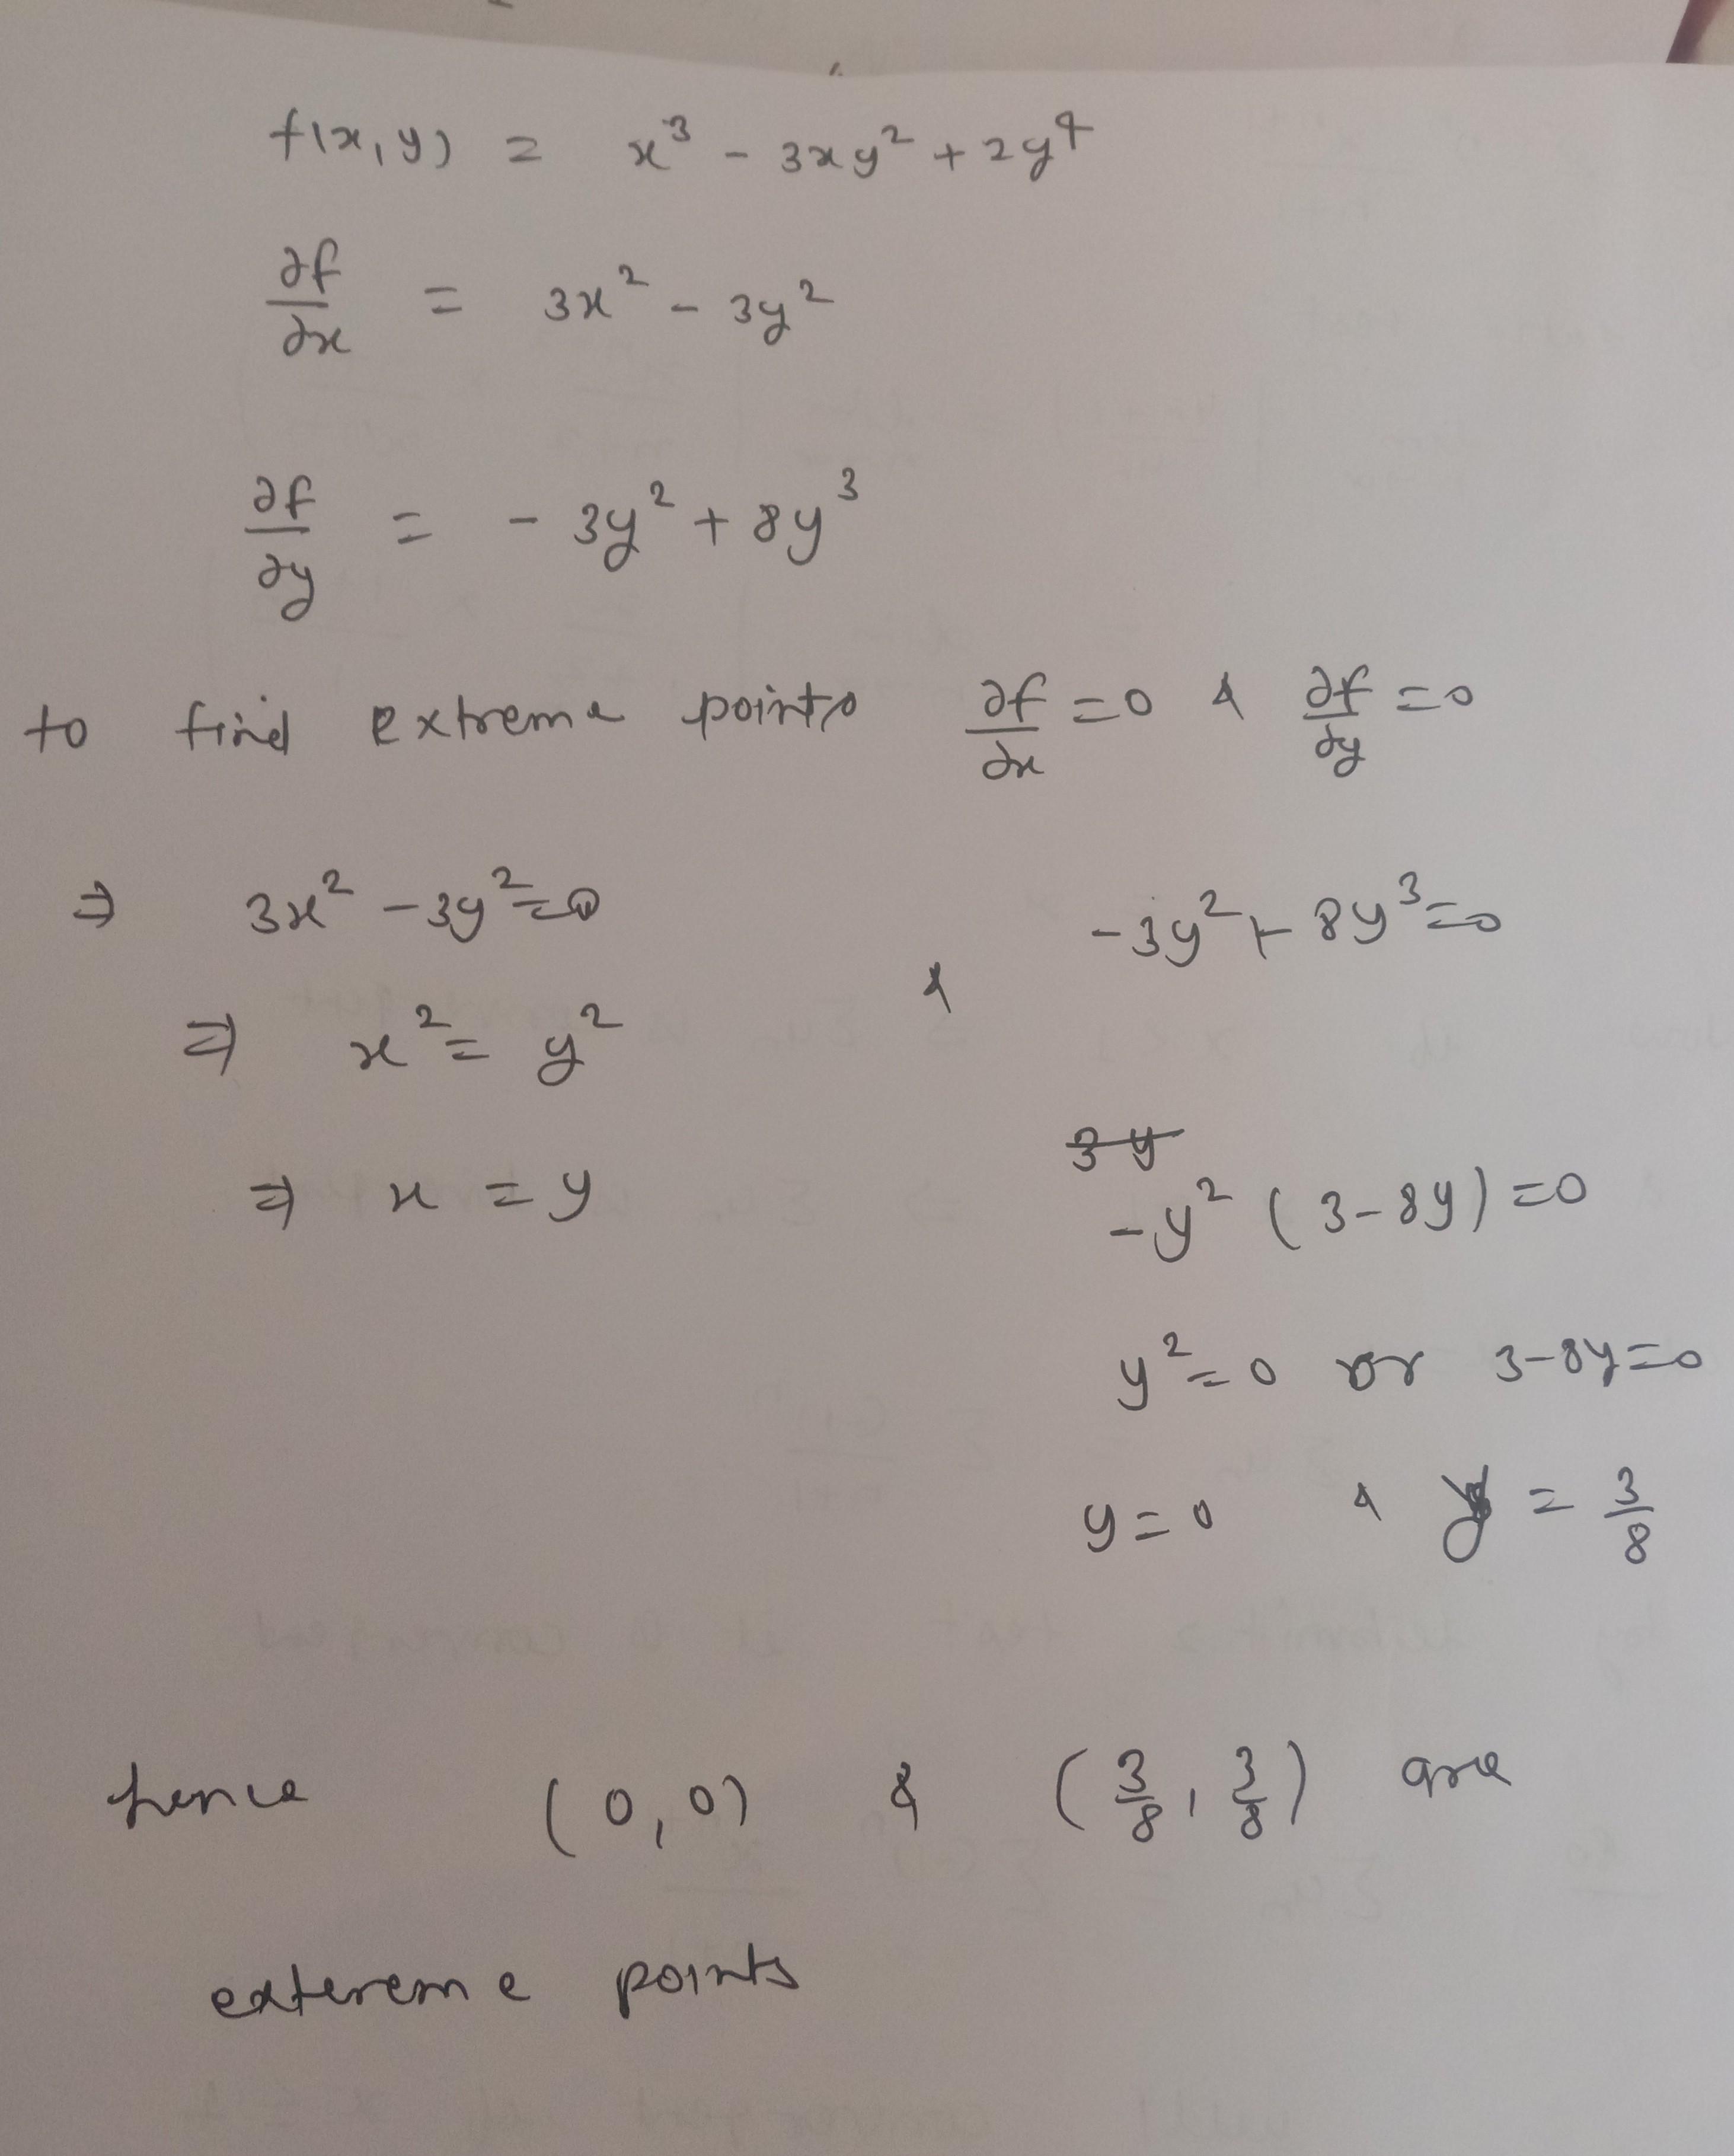 f(x,y) = x³ - 3xy² + 2y⁴
∂f/∂x = 3x² - 3y²
∂f/∂y = - 3y² + 8y³
to find extreme points ∂f/∂x = 0 & ∂f/∂y = 0
⇒ 3x² - 3y² = 0 & -3y² + 8y³ = 0
⇒ x² = y²
3y
⇒ x = y -y² (3 - 8y) = 0
y² = 0 or 3-8y = 0
y = 0 & y = 3/8
hence (0,0) & (3/8, 3/8) are
extereme points